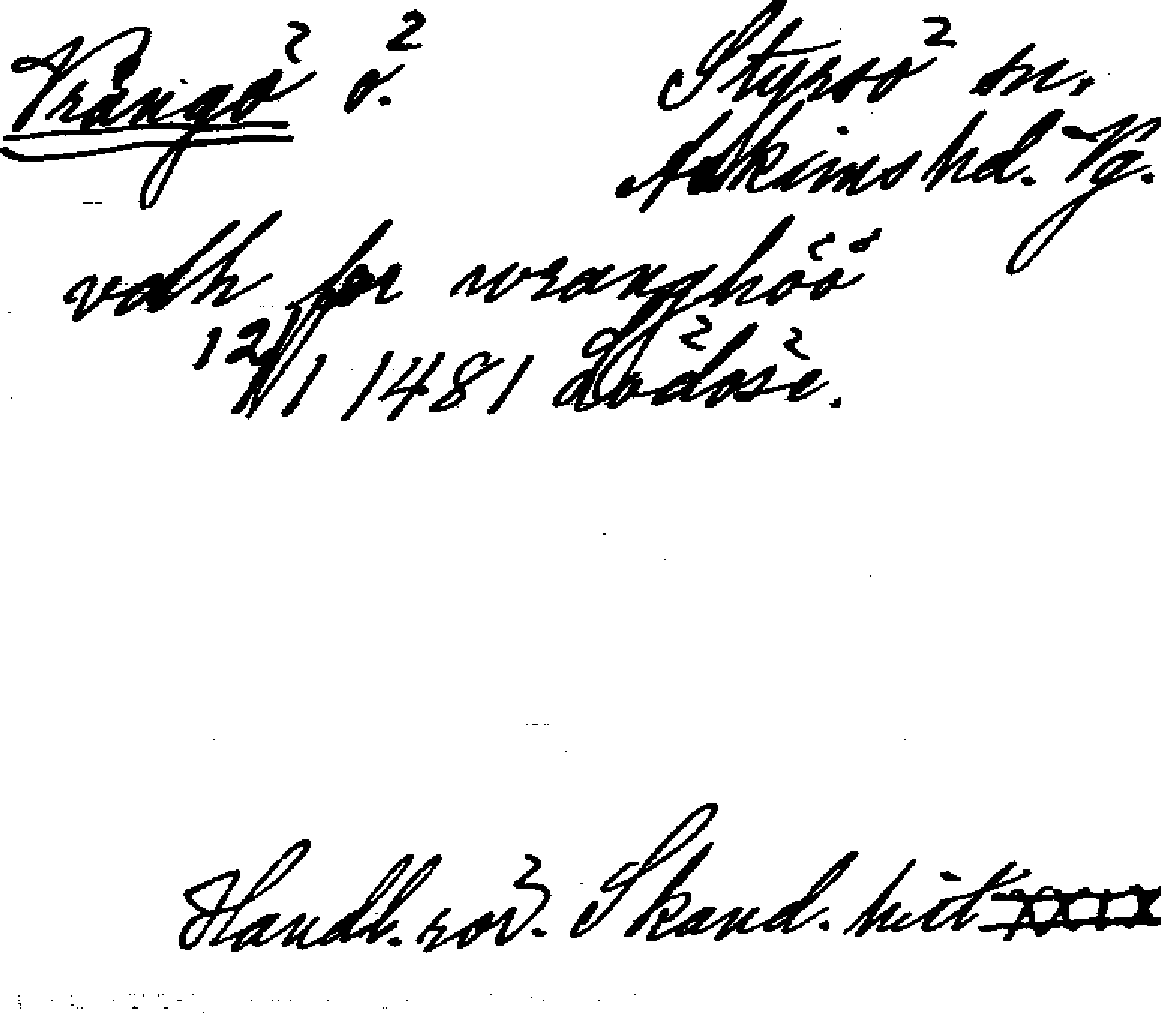 Vrångö ö. Styrsö sn.
Askims hd. Vg.
vdh for wranghöö
12/1 1481 Lödöse.
Handl. rör. Skand. hist XXIX